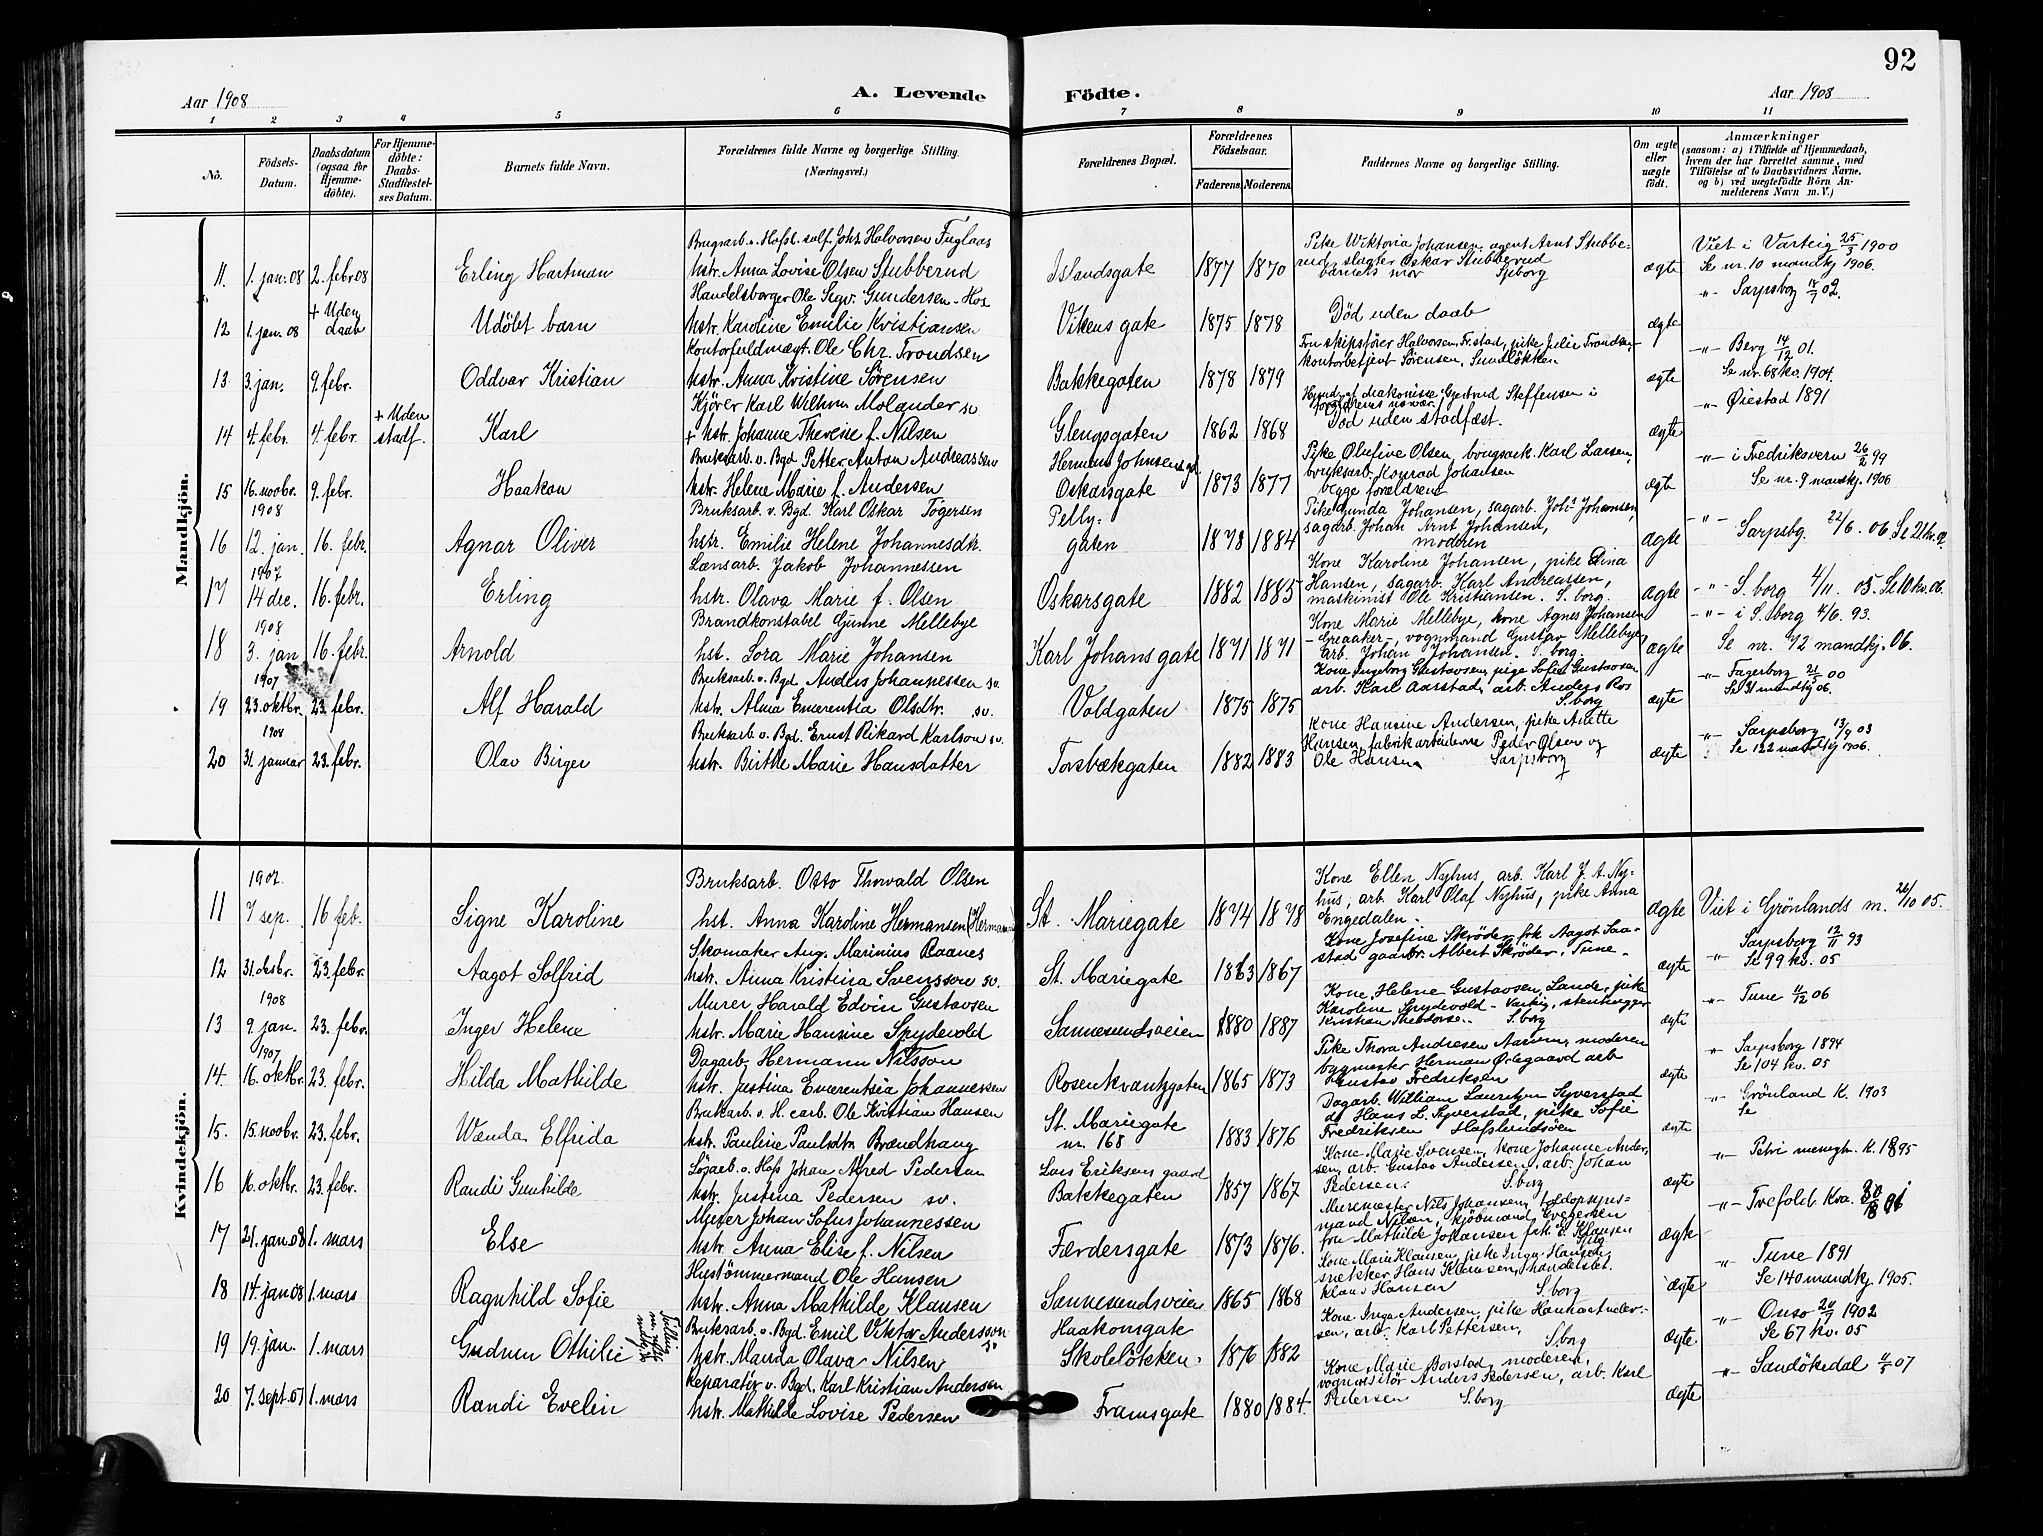 92
Aar 1908 A. Levende Födte. Aar 1908
1 2 3 4 5 6 7 8 9 10 11
No. Födsels-Datum. Daabsdatum (ogsaa for Hjemmedöbte). For Hjemmedöbte: Daabs-Stadfæstelses Datum. Barnets fulde Navn. Forældrenes fulde Navne og borgerlige Stilling. (Næringsvei.) Forældrenes Bopæl. Forældrenes Födselsaar. Faderens. Moderens. Faddernes Navne og borgerlige Stilling. Om ægte eller uægte födt. Anmærkninger (saasom: a) i Tilfælde af Hjemmedaab, hvem der har forrettet samme, med Tilföielse af to Daabsvidners Navne, og b) ved uægtefödte Börn Anmelderens Navn m. V.)
Mandkjön.
Brugsarb. v. Hafsl. sulf. Johs. Halvorsen Fuglaas
Pike Wiktoria Johansen, agent Arnt Stubberud, slagter Oskar Stubberud
Viet i Varteig 25/3 1900
11. 1. jan. 08 2. febr 08 Erling Hartman hstr. Anna Lovise Olsen Stubberud Islandsgate 1877 1870 barnets mor Sp.borg ægte Se nr. 10 mandkj 1906.
Handelsborger Ole Sigv. Gundersen
" Sarpsborg 02.
12 1. jan. 08 + Uden daab Udöbt barn hstr. Karoline Emilie Kristiansen Vikens gate 1875 1878 Död uden daab ægte
Kontorfuldmægt. Ole Chr. Trondsen
Fru skipsförer Halvorsen, Fr.stad, pike Julie Trondsen,
" Berg 14/12 01.
13 3. jan. 9. febr. Oddvar Kristian hstr. Anna Kristine Sörensen Bakkegaten 1878 1879 kontorbetjent Sörensen, Sundlökken ægte Se nr. 68 kv. 1904.
Kjörer Karl Wilhem Molander sv.
Hjemdöbt af diakonisse Gjertrud Steffensen i forældrenes nærvær.
" Öiestad 1891
14 4. febr. 4. febr. + Uden stadf. Karl + hstr. Johanne Therese f. Nilsen Glengsgaten 1862 1868 Död uden stadfæst. ægte
Bruksarb. v. Bgd Petter Anton Andreassen
Hermans Johnsens gd
Pike Olufine Olsen, brugsarb. Karl Larsen,
" i Fredriksvern 26/2 99
15 16. novbr. 9. febr. Haakon hstr. Helene Marie f. Andersen Oskarsgate 1873 1877 bruksarb. Konrad Johansen begge forældrene ægte Se nr. 9 mandkj. 1906
1908
Bruksarb. v. Bgd. Karl Oskar Togersen
Pelly-
Pike Gunda Johansen, sagarb. Johs Johansen,
16 12. jan. 16. febr. Agnar Oliver hstr. Emilie Helene Johannesdtr. gaten 1878 1884 sagarb. Johan Arnt Johansen, moderen ægte " Sarpsbg. 22/6. 06 Se 21 kv. 07.
1907
Lænsarb. Jakob Johannessen
Kone Karoline Johansen, pike Dina
17 14 dec. 16. febr. Erling hstr. Olava Marie f. Olsen Oskarsgate 1882 1885 Hansen, sagarb. Karl Andreassen, maskinist Ole Kristiansen. S. borg. ægte " S. borg 4/11. 05. Se 10 kv. 06.
1908
Brandkonstabel Gunne Mellebye
Kone Marie Mellebye, kone Agnes Johansen
" i S. borg 4/6. 93.
18 3. jan 16. febr. Arnold hst. Lora Marie Johansen Karl Johans gate 1871 1871 Greaaker, vognmand Gustav Mellebye, arb. Johan Johansen. S. borg. ægte Se nr. 72 mandkj. 06.
1907
Bruksarb. v. Bgd. Anders Johannessen sv.
Kone Ingeborg Gustavsen, pige Sofie Gustavsen
" Fagerborg 21/5 00
19 23. oktbr. 23. febr. Alf Harald hstr. Alma Emerentia Olsdtr. sv. Voldgaten 1875 1875 arb. Karl Aarstad, arb. Anders Ros S. borg ægte Se 31 mandkj 06.
1908
Bruksarb. v. Bgd. Ernst Rikard Karlson sv.
Kone Hansine Andersen, pike Anette
" Sarpsborg 13/9 03
20 31. januar 23. febr. Olav Birger hstr. Birthe Marie Hansdatter Torsbækgaten 1882 1883 Hansen, fabrikarbeiderne Peder Olsen og Ole Hansen Sarpsborg ægte Se 122 mandkj 1906.
Kvindekjön.
1907.
Bruksarb. Otto Thorvald Olsen
Kone Ellen Nyhus, arb. Karl J. A. Nyhus, arb. Karl Olaf Nyhus, pike Anna
11 7 sep. 16 feb. Signe Karoline hst. Anna Karoline Hermansen St. Mariegate 1874 1878 Engedalen. ægte Viet i Grönlands m. 26/10 05.
Skomaker Aug. Marinius Raanes
Kone Josefine Skröder, frk Aagot Saastad
Sarpsborg 12/11 93
12 31. desbr. 23. febr. Aagot Solfrid hstr. Anna Kristina Svensson sv. St. Mariegate 1863 1867 gaardbr. Albert Skröder, Tune. ægte " Se 99 kv. 05
1908
Murer Harald Edvin Gustavsen
Kone Helene Gustavsen, Lande, pike
" Tune 11/12 06
13 9. jan. 23. febr. Inger Helene hstr. Marie Hansine Spydevold Sannesundsveien 1880 1887 Karoline Spydevold - Varteig, stenhugger Kristian S. borg ægte
1907
Dagarb. Hermann Nilsson
Pike Thora Andresen Aarum, moderen
" Sarpsborg 1894
14. 16. oktbr. 23. febr. Hilda Mathilde hstr. Justina Emerentsia Johannessen Rosenkrantzgaten 1865 1873 bygmester Herman Ödegaard arb Gustav Fredriksen ægte Se 104 kv. 05
Bruksarb. v. H. carb. Ole Kristian Hansen
St. Mariegate
Dagarb. William Lauritzen Syverstad
" Grönland K. 1903
15. 15. novbr. 23. febr. Wanda Elfrida hstr. Pauline Paulsdtr Brændhaug nr. 168 1883 1876 do Hans L. Syverstad, pike Sofie Fredriksen Hafslundsöen ægte Se
Sögarb. v. Hafs Johan Alfred Pedersen
Lars Eriksens gaard
Kone Marie Svensen, kone Johanne Andersen,
" Petri menigh. K. 1895
16 16. oktbr. 23. febr. Randi Gunhilde hstr. Justina Pedersen sv. Bakkegaten 1857 1867 arb. Gustav Andersen, arb. Johan Pedersen. S. borg ægte
Murer Johan Sofus Johannessen
Murmester Nils Johansen, toldopsynsmand Nilsen, kjöbmand
" Trefold. Kra.
17 21. jan. 08 1. mars Else hstr. Anna Elise f. Nilsen Færdersgate 1873 1876. fru Mathilde Johansen frk. E. Klausen ægte
Hustömmermand Ole Hansen
Kone Marie Klausen, pike Inga Hansen,
" Tune 1891
18 14. jan 08 1. mars Ragnhild Sofie hstr. Anna Mathilde Klausen Sannesundsveien 1865 1868 snekker Hans Klausen, handelsbet. Klaus Hansen S. borg ægte Se 140 mandkj. 1905.
Bruksarb. v. Bgd. Emil Viktor Andersson sv
Haakonsgate
Kone Inga Andersen, pike Hanna Andersen,
" Onsö 20/7 1902
19 19. jan. 1. mars Gudrun Othilie hstr. Manda Olava Nilsen Skolelökken. 1876 1882 arb. Karl Pettersen, S. borg ægte. Se 67 kv. 05
Reparatör v. Bgd. Karl Kristian Andersen
Kone Marie Borstad, moderen,
" Sandökedal 07
20 7. sept. 07 1. mars Randi Evelin hstr. Mathilde Lovise Pedersen Framsgate 1880 1884. vognvisitör Anders Pedersen, arb. Karl Pedersen S. borg ægte